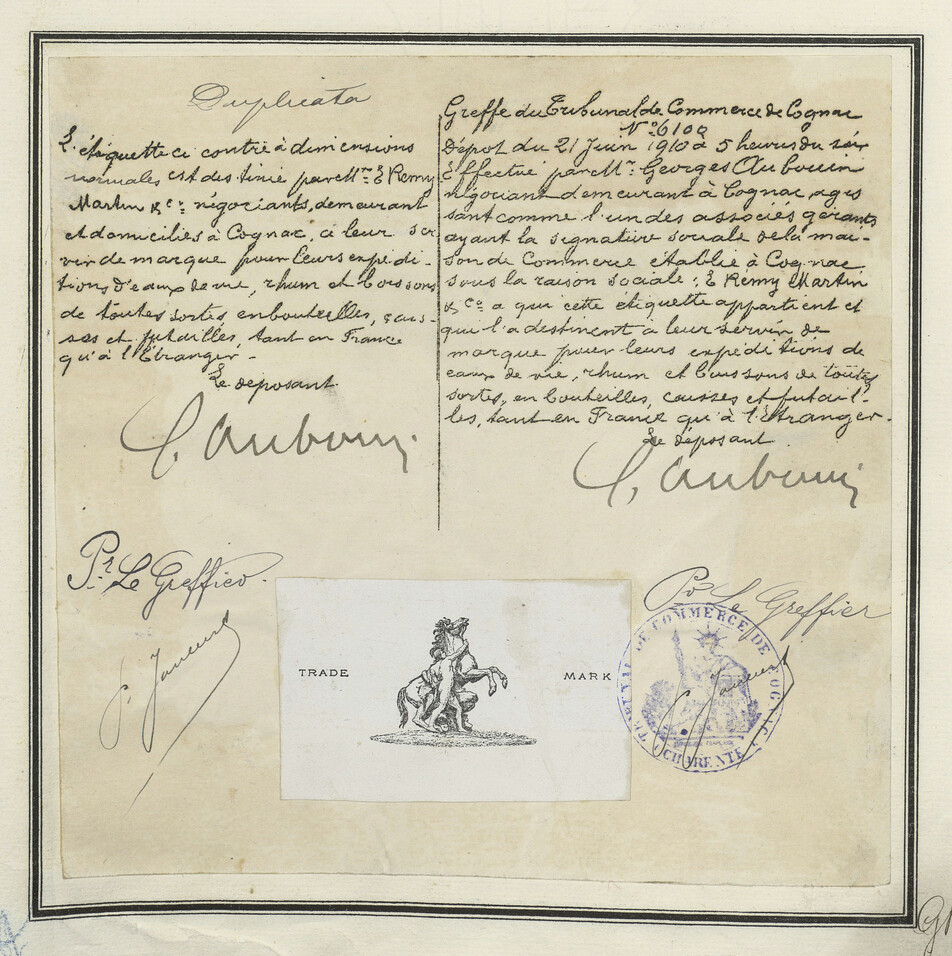 Duplicata
L'étiquette ci contre à dimensions
normales est destinée par Mrs E Remy
Martin & Co négociants, demeurant
et domiciliés à Cognac, à leur ser
vir de marque pour leurs expédi-
tions d'eaux de vie, rhum et boissons
de toutes sortes en bouteilles, cais-
ses et futailles, tant en France
qu'à l'Etranger-
Le déposant
G. Aubouin
Pr. Le Greffier.
Greffe du Tribunal de Commerce de Cognac
No 6100
Dépot du 21 Juin 1910 à 5 heures du soir
Effectué par Mr. Georges Aubouin
négociant demeurant à Cognac, agis
sant comme l'un des associés gérants
ayant la signature sociale de la mai-
son de Commerce établie à Cognac
sous la raison sociale: E Rémy Martin
& Co a qui cette étiquette appartient et
qui l'a destinent à leur servir de
marque pour leurs expéditions de
eaux de vie, rhum et boissons de toutes
sortes, en bouteilles, caisses et futail-
les, tant en France qu'à l'Etranger-
Le déposant
G. Aubouin
Pr Le Greffier
TRADE MARK
TRIBUNAL DE COMMERCE DE COGNAC
(CHARENTE)